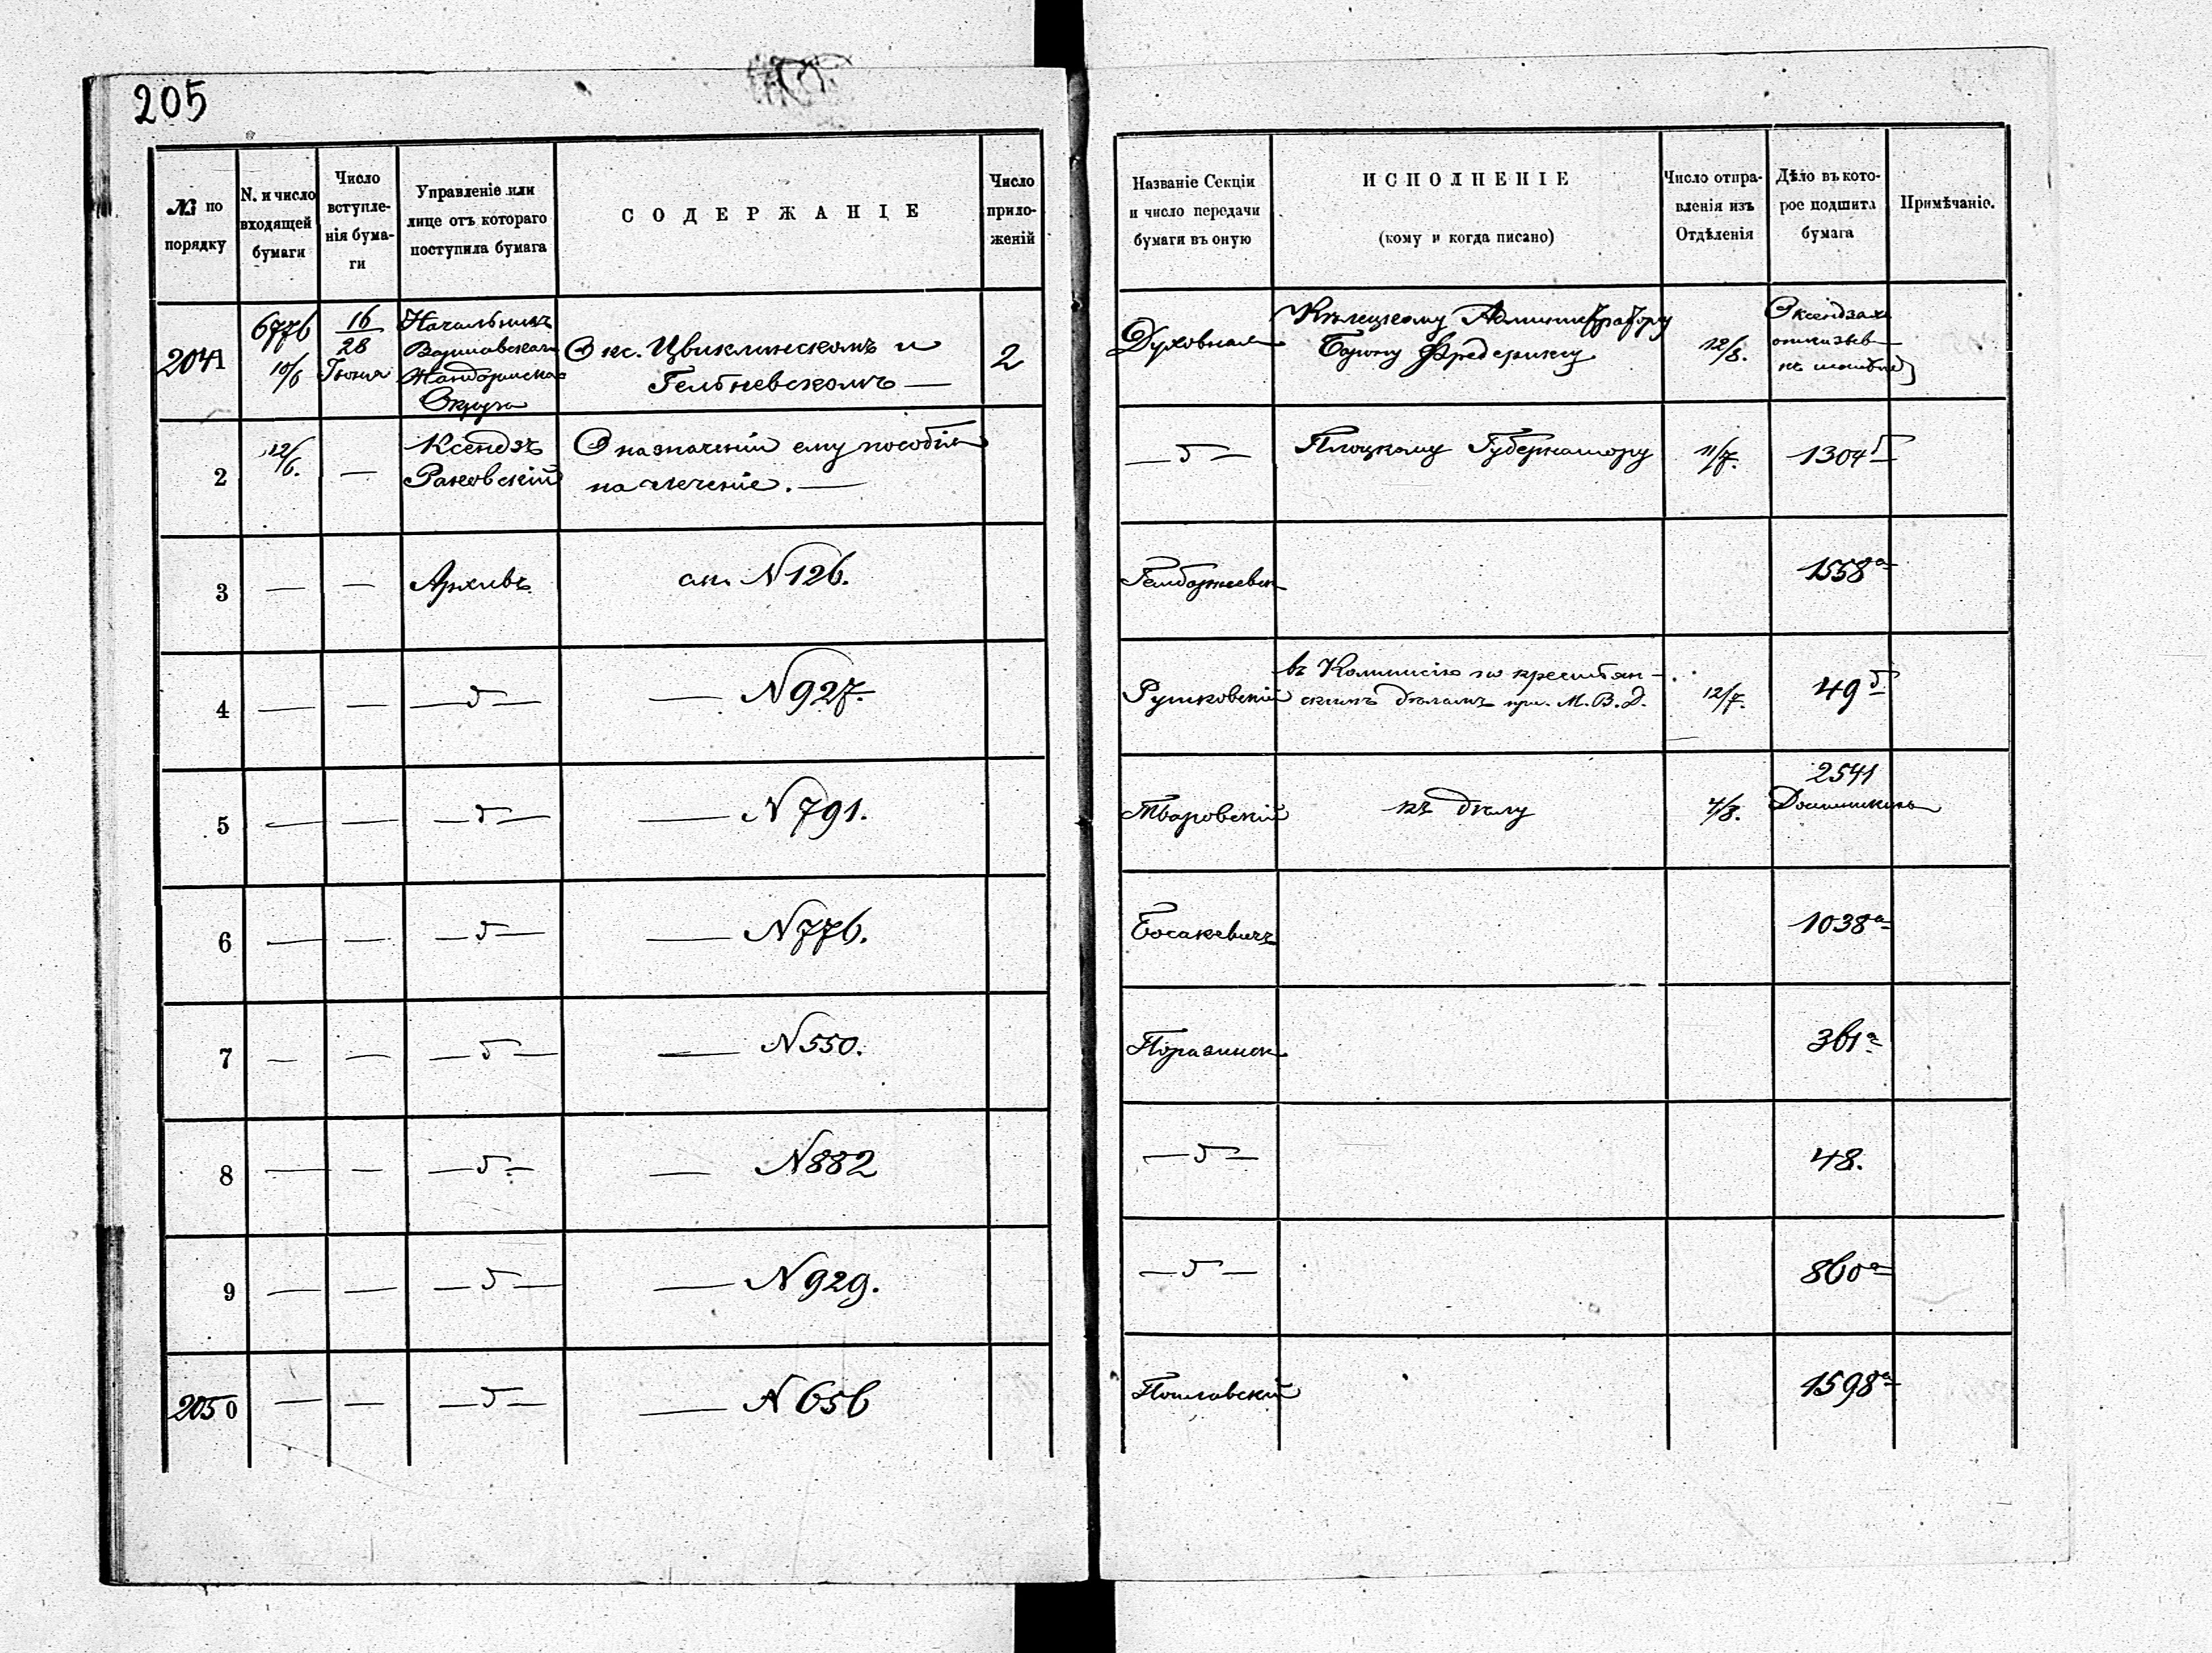 205
№ по порядку
N. и число входящей бумаги
Число вступленія бумаги
Управленіе или лице отъ котораго поступила бумага
СОДЕРЖАНІЕ
Число приложеній
Названіе Секціи и число передачи бумаги въ оную
ИСПОЛНЕНІЕ
(кому и когда писано)
Число отправленія изъ Отдѣленія
Дѣло въ которое подшита бумага
Примѣчаніе.
2041
6776
10/6
16
28
Іюня
Начальникъ
Варшавскаго
Жандармскаго
Округа
О кс. Цвиклинскомъ и
Гельневскомъ —
2
Духовная
Кѣлецкому Администратору
Барону Фредериксу
12/8.
О ксендзахъ
2
12/6.
—
Ксендзъ
Раковскій
О назначеніи ему пособія
на леченіе. —
— д —
Плоцкому Губернатору
11/7.
1304 б
3
— —
Архивъ
ак. N 126.
1558 а
4
— —
— д —
— N 927.
Рутковскій
въ Коммисію по крестьян-
скимъ дѣламъ при М. В. Д.
12/7.
49 б
5
— —
— д —
— N 791.
Тваровскій
къ дѣлу
4/8.
2541
6
— —
— д —
— N 776.
Босакевичъ
1038 а
7
— —
— д —
— N 550.
Поразинск
361 а
8
— —
— д —
— N 882
— д —
48.
9
— —
— д —
— N 929.
— д —
860 а
2050
— —
— д —
— N 656
Поплавскій
1598 а